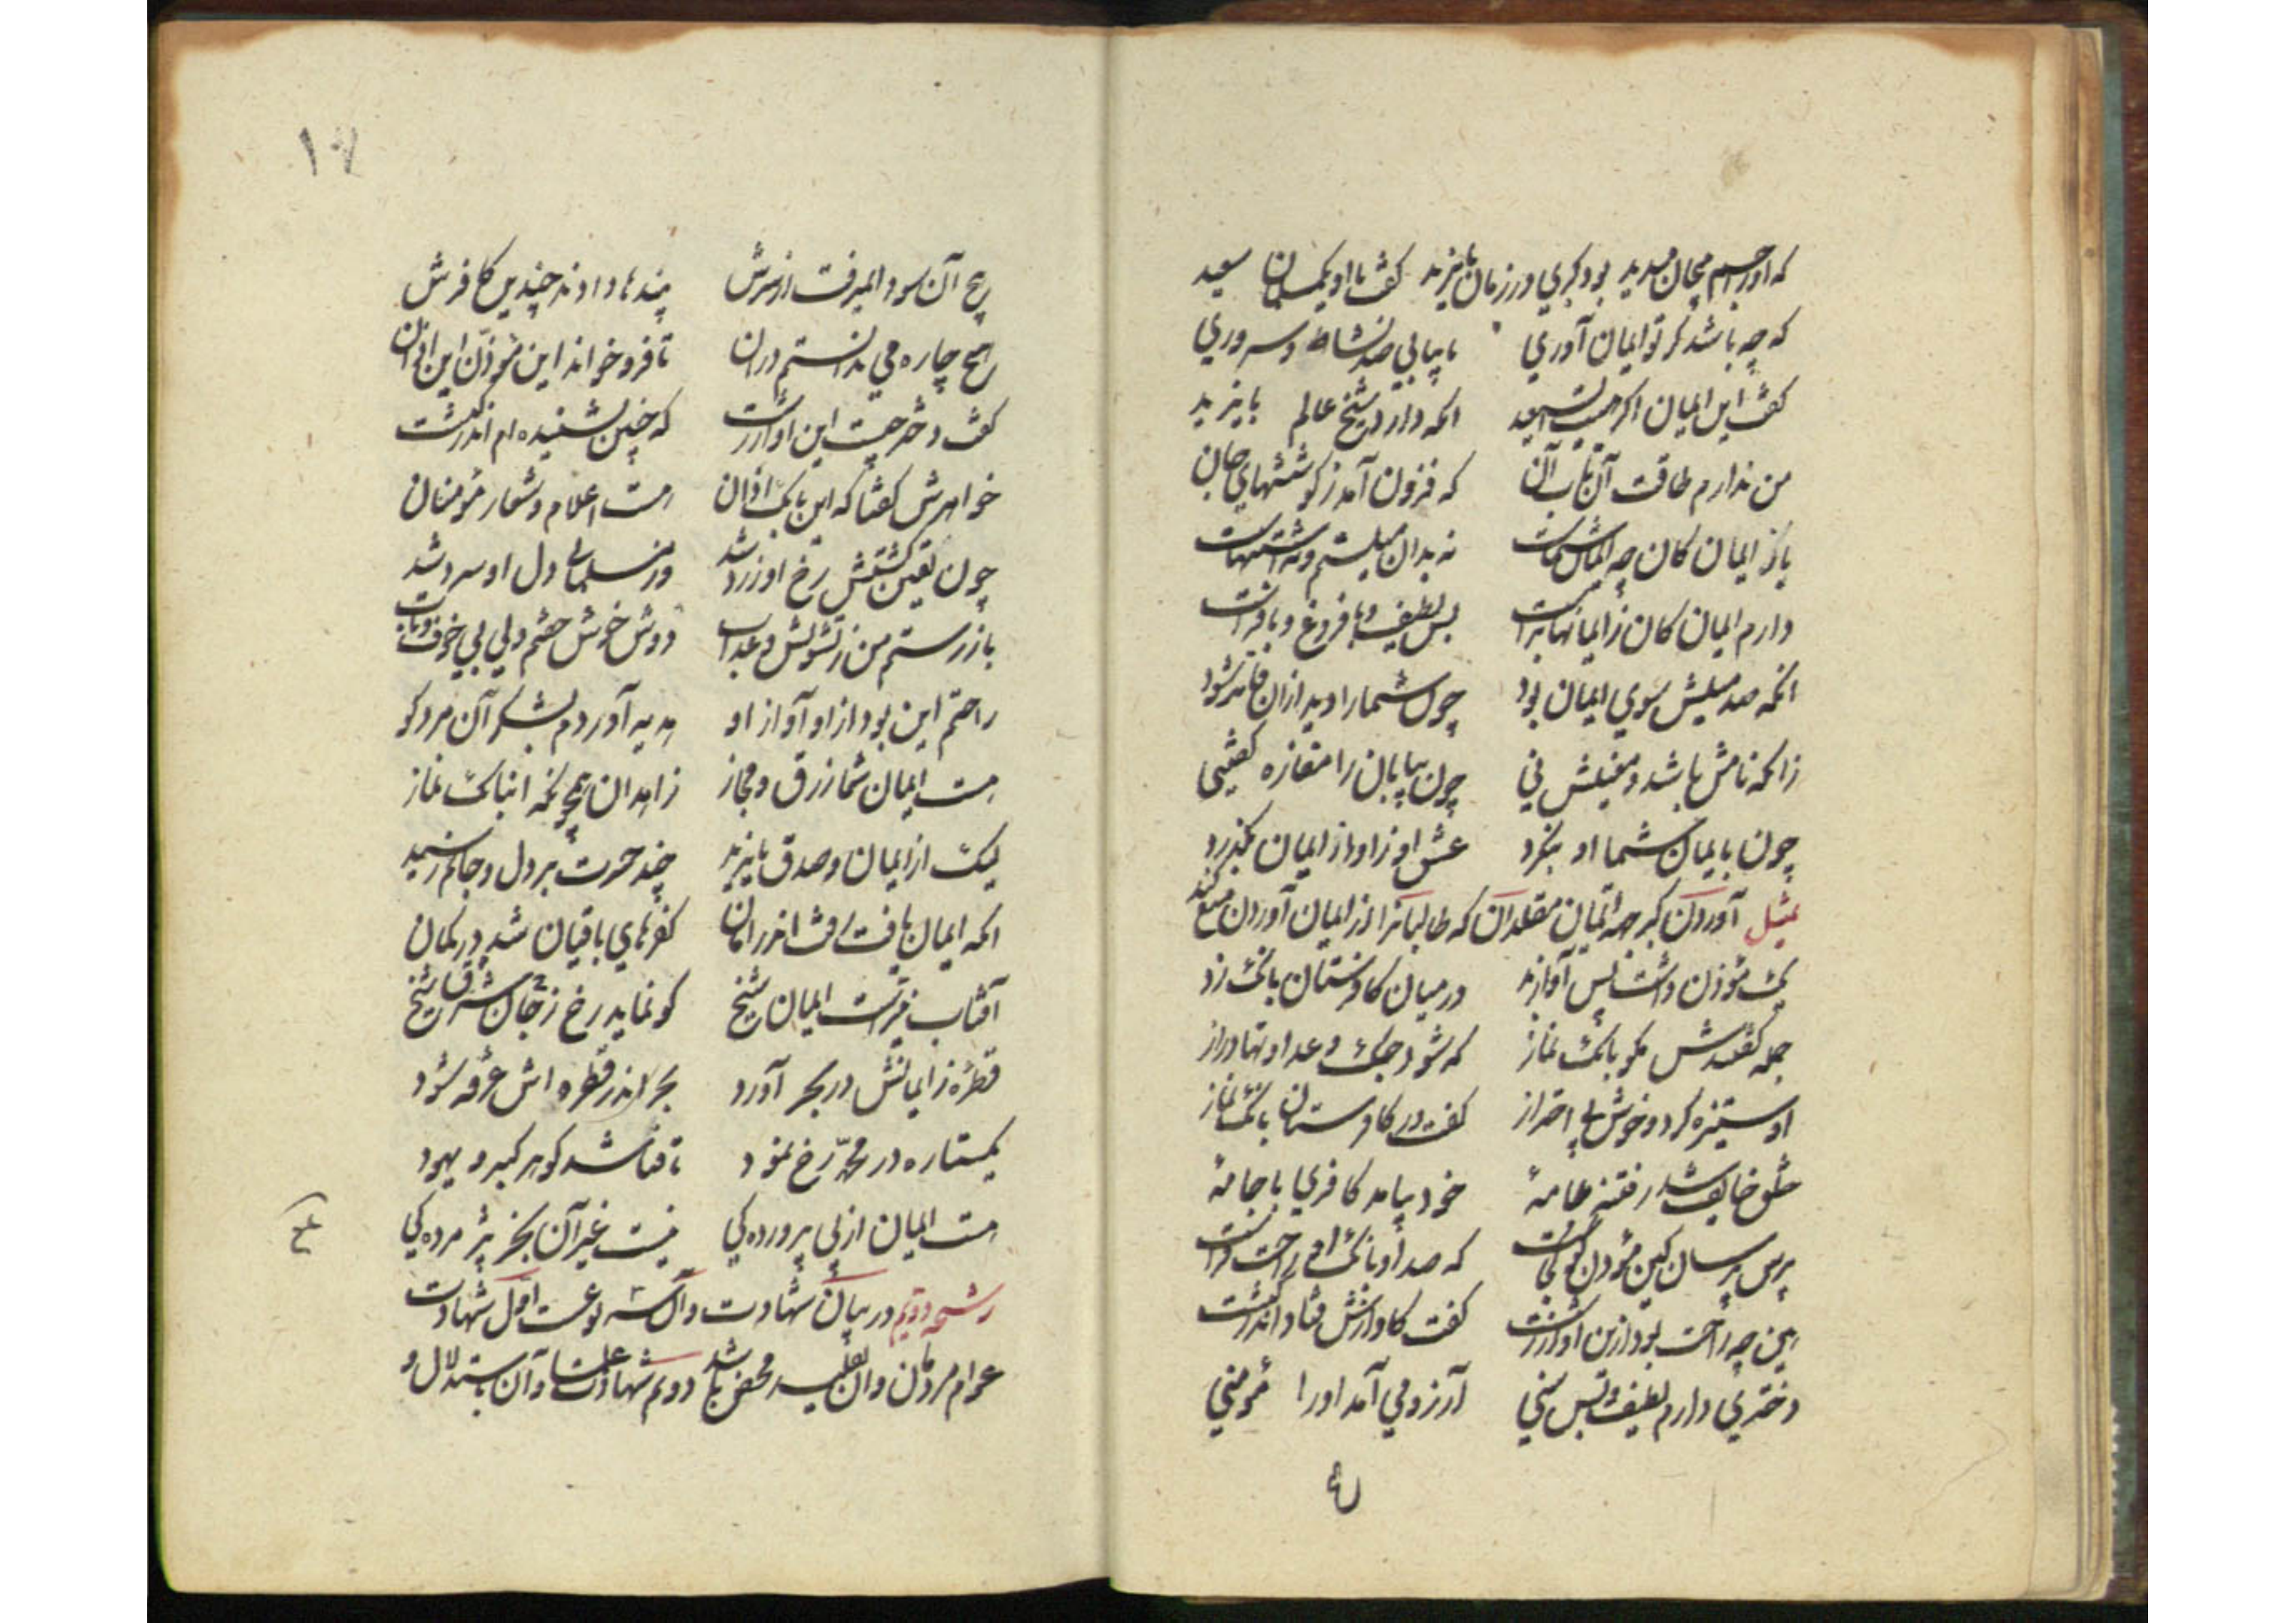 که اورا جسم بیجان میدید بود گبری در زمان بایزید گفت با او یک مسلمان سعید
که چه باشد گر تو ایمان آوری تا بیابی صد نشاط و سروری
گفت این ایمان اگر هست ای سعید آنکه دارد شیخ عالم بایزید
من ندارم طاقت آن تاب آن که فزون آمد ز کوششهای جان
باز ایمان کان چه ایمان شماست نه بدان میلستم و نه اشتهاست
دارم ایمان کان ز ایمانها براست بس لطیف و با فروغ و با فرست
آنکه صد میلش سوی ایمان بود چون شما را دید از آن فاتر شود
زانکه نامش باشد و معنیش نی چون بیابان را مفازه گفتنی
چون بایمان شما او بنگرد عشق او ز اورد ایمان بگذرد
تمثیل آوردن گبر جهة ایمان مقلدان که طالبانرا از ایمان آوردن منع کند
یک مؤذن داشت بس آواز بد در میان کافرستان بانگ زد
جمله گفتندش مگو بانگ نماز که شود جنگ و عداوتها دراز
او ستیزه کرد و خوش بی احتراز گفت در کافرستان بانگ نماز
خلق خایف شد ز فتنه عامهٔ خود بیامد کافری با جامهٔ
پرس پرسان کین مؤذن گو کجاست که صدا و بانگ او راحت فزاست
هین چه راحت بود ازین آواز زشت گفت کاوازش فتاد اندر کنشت
دختری دارم لطیف و بس سنی آرزو می آمد او را مؤمنی
۱۷
هیچ آن سودا نمیرفت از سرش پندها دادند چندین کافرش
هیچ چاره می ندانستم در آن تا فرو خواند این مؤذن این اذان
گفت دختر چیست این آواز زشت که چنین نشنیده ام اندر کنشت
خواهرش گفتا که این بانگ اذان هست اعلام و شعار مؤمنان
چون یقین گشتش رخ او زرد شد وز مسلمانی دل او سرد شد
باز رستم من ز تشویش و عذاب دوش خوش خفتم ولی بی خوف خواب
راحتم این بود از آواز او هدیه آوردم بشکر آن مرد کو
هست ایمان شما زرق و مجاز زاهدان همچو که آن بانگ نماز
لیک از ایمان و صدق بایزید چند حسرت بر دل و جانم رسید
آنکه ایمان یافت رفت اندر امان کفرهای باقیان شد در گمان
آفتاب نیرست ایمان شیخ گو نماید رخ ز جان شرق شیخ
قطرهٔ ز ایمانش در بحر آورد بحر اندر قطره اش غرقه شود
یک ستاره در محمد رخ نمود تا فنا شد گوهر گبر و یهود
هست ایمان از پی پرورده کی نیست غیر آن بجز پژمرده کی
رشحه دویم در بیان شهادت و آن سه نوعست اول شهادت
عوام مردمان و آن تقلید محض باشد دویم شهادت علما و آن باستدلال و